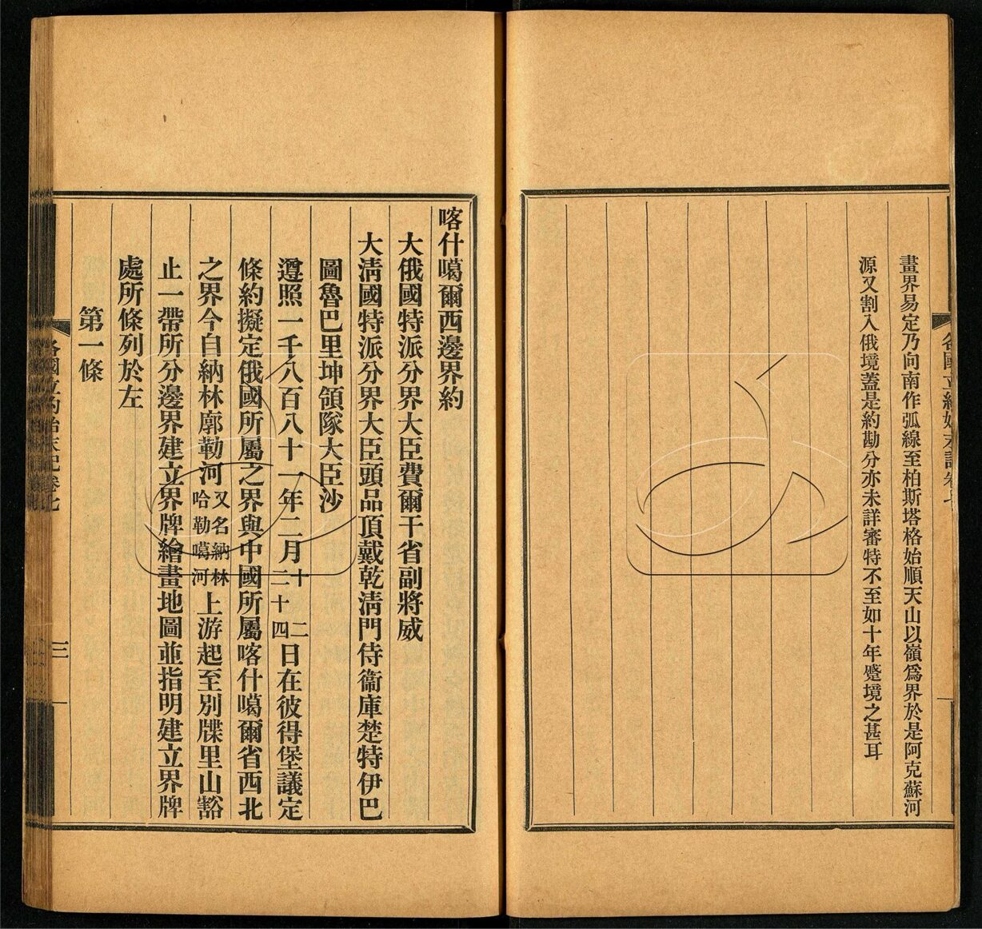 畫界易定乃向南作弧線至柏斯塔格始順天山以嶺爲界於是阿克蘇河
源又割入俄境蓋是約勘分亦未詳審特不至如十年蹙境之甚耳
喀什噶爾西邊界約
大俄國特派分界大臣費爾干省副將威
大淸國特派分界大臣頭品頂戴乾淸門侍衞庫楚特伊巴
圖魯巴里坤領隊大臣沙
遵照一千八百八十一年二月十二二十四日在彼得堡議定
條約擬定俄國所屬之界與中國所屬喀什噶爾省西北
之界今自納林廓勒河又名納林哈勒噶河上游起至別牒里山豁
止一帶所分邊界建立界牌繪畫地圖並指明建立界牌
處所條列於左
第一條
各國立約始末記卷七
三